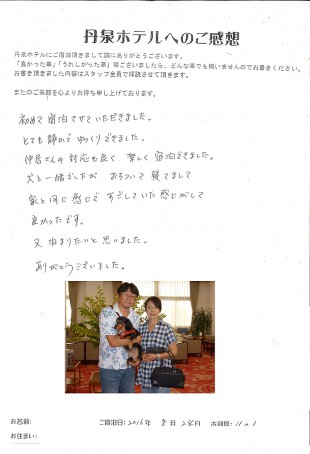 丹泉ホテルへのご感想
丹泉ホテルにご宿泊頂きまして誠にありがとうございます。
「良かった事」「うれしかった事」等ございましたら、どんな事でも構いませんのでお書きください。
お書き頂きました内容はスタッフ全員で拝読させて頂きます。
またのご来館を心よりお待ち申し上げております。
初めて宿泊させていただきました。
とても静かでゆっくりできました。
仲居さんの対応も良く、楽しく宿泊できました。
犬と一緒でしたが おちついて 寝てまして
家と同じ感じで すごしていた感じがして
良かったです。
又 泊まりたいと思いました。
ありがとうございました。
お名前:
ご宿泊日:2016年 8月 28日 お部屋:1101
お住まい: